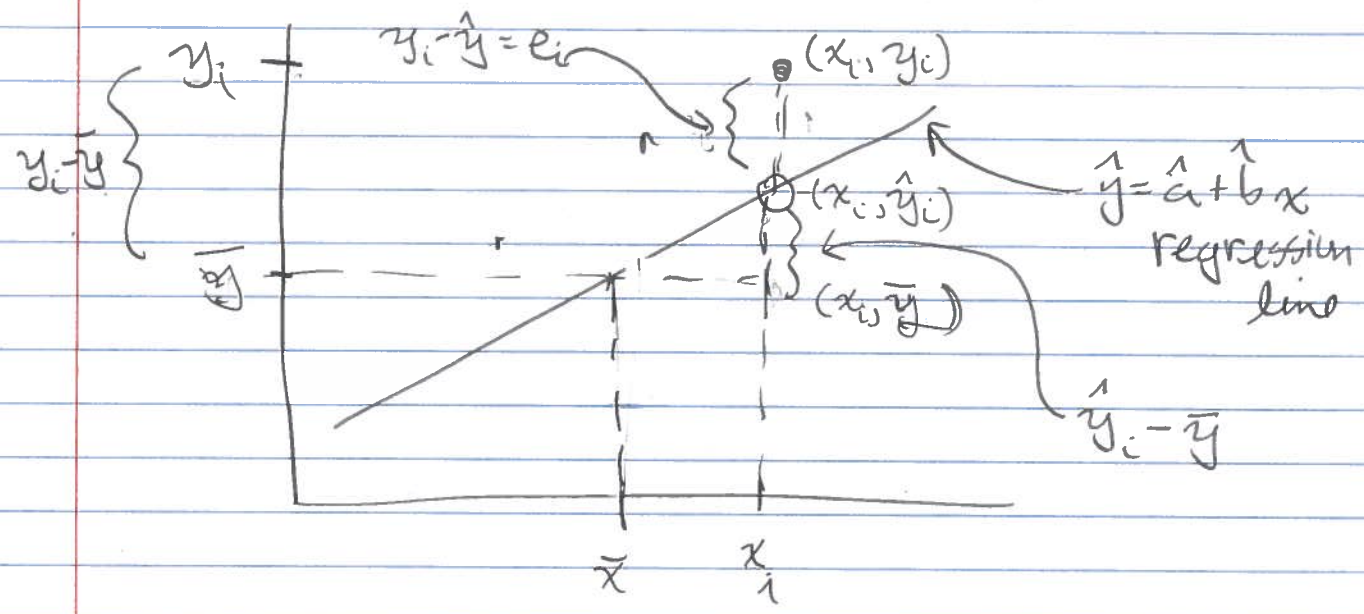 yᵢ
yᵢ - ŷ = eᵢ
(xᵢ, yᵢ)
yᵢ - ȳ
(xᵢ, ŷᵢ)
ŷ = â + b̂x
regression
line
ȳ
(xᵢ, ȳ)
ŷᵢ - ȳ
x̄
xᵢ